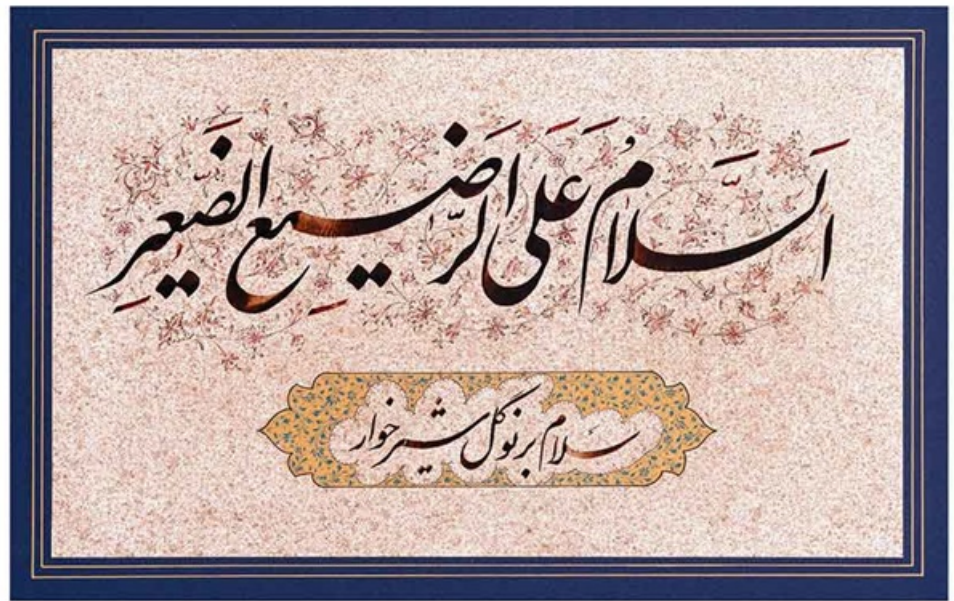 السَّلامُ عَلَی الرَّضیعِ الصَّغیرِ
سلام بر نوگل شیرخوار